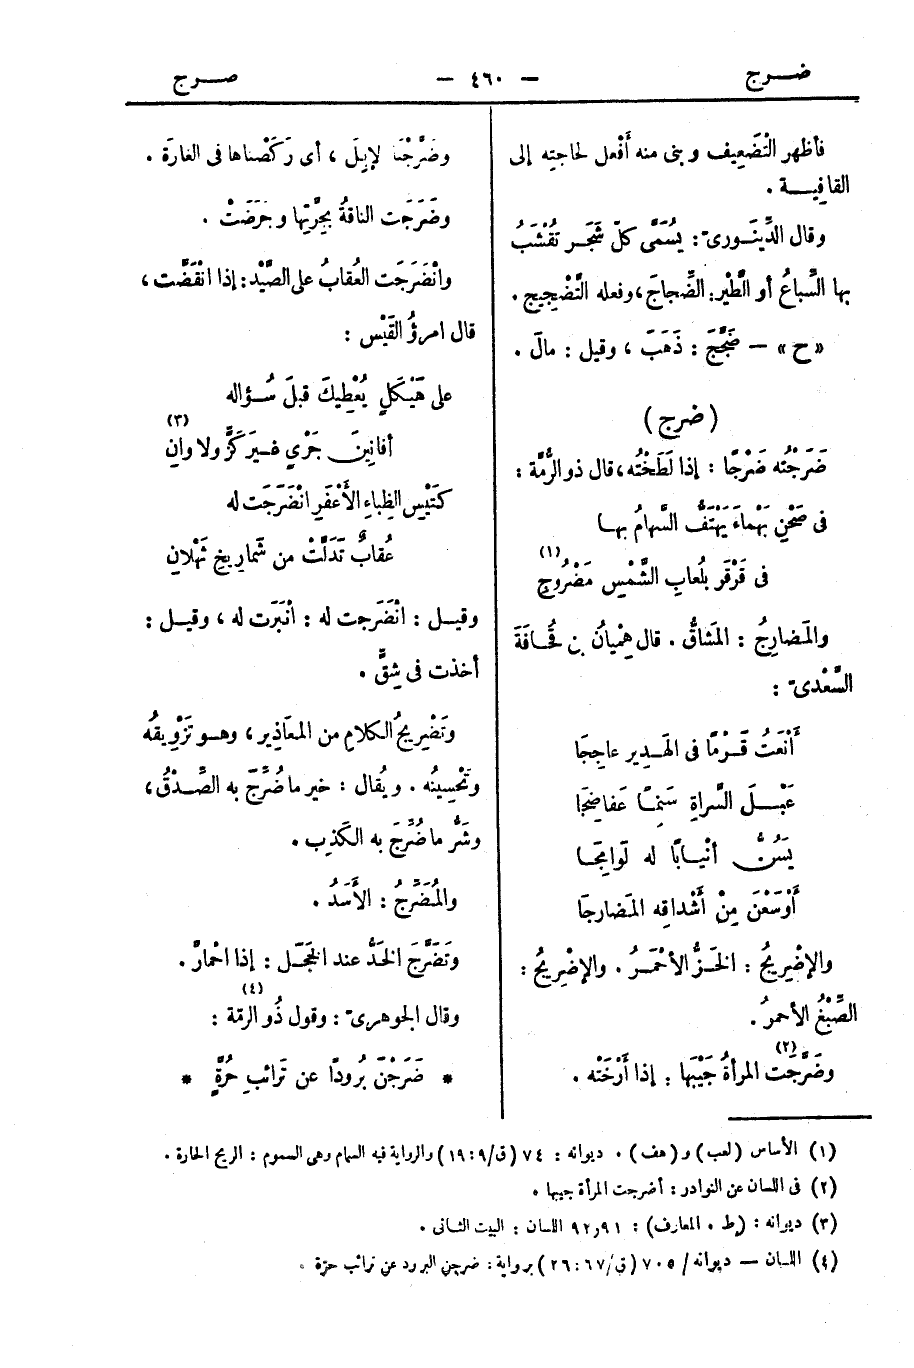 ضرج
— ٤٦٠ —
ضرج
فأظهر التَّضعِيف وبنى منه أَفْعل لحاجته إلى
القافِيــة .
وقال الدِّينَــورىّ : يُسَمَّى كلّ شَجَــر تُقْشَبُ
بها السِّباعُ أو الطَّيْر: الضِّجاجَ ، وفعله التَّضْجِيج .
« ح » — ضَجَّجَ : ذَهَبَ ، وقيل : مالَ .
( ضرج )
ضَرَجْتُه ضَرْجًا : إذا لَطَخْتُه، قال ذو الرُّمَّة :
فى صَحْنِ بَهْماءَ يَهْتَفُّ السَّهامُ بهــا
فى قَرْقَرٍ بلُعابِ الشَّمْسِ مَضْروجِ (١)
والمَضارِجُ : المَشاقُّ . قال هِمْيانُ بن قُحَــافَةَ
السَّعْدىّ :
أَنْعَتُ قَــرْمًا فى الهَدِير عاجِجَا
عَبْــلَ السَّراةِ سَنِمًـا عَفاضِجَا
يَسُنُّ أَنْيــابًا له لَوامِجَـا
أَوْسَعْنَ مِنْ أَشْداقِه المَضارِجَا
والإضْرِيجُ : الخَــزُّ الأَحْمَــرُ . والإضْرِيجُ :
الصِّبْغُ الأحمرُ .
وضَرَّجَت المرأةُ جَيْبَها : إذا أَرْخَتْه . (٢)
وضَرَّجْنا لإبِلَ ، أى رَكَضْناها فى الغارَة .
وضَرَجَت الناقةُ بجِرَّتِها وجَرَضَتْ .
وانْضَرَجَت العُقابُ على الصَّيْد: إذا انْقَضَّت ،
قال امرؤُ القَيْس :
على هَيْكَلٍ يُعْطِيكَ قبلَ سُــؤاله
أفانِينَ جَرْيٍ غــيرَ كَزٍّ ولا وانِ (٣)
كتَيْسِ الظِباءِ الأَعْفَرِ انْضَرَجَت له
عُقابٌ تَدَلَّتْ من شَمارِيخِ ثَهْلانِ
وقيــل : انْضَرَجت له : انْبَرَت له ، وقيــل :
أخذت فى شِقٍّ .
وتَضْرِيجُ الكلامِ من المعَاذِير ، وهــو تَزْوِيقُه
وتَحْسِينُه . ويُقال : خير ما ضُرِّجَ به الصِّــدْقُ ،
وشَرُّ ما ضُرِّجَ به الكَذِب .
والمُضَرِّجُ : الأَسَدُ .
وتَضَرَّجَ الخَدُّ عند الخَجَــلِ : إذا احْمارَّ .
وقال الجوهرىّ : وقول ذُو الرمّة : (٤)
* ضَرَجْنَ بُرودًا عن تَرائبِ حُرَّةٍ *
(١) الأساس (لعب) و (هف) . ديوانه : ٧٤ (ق/٩ : ١٩) والرواية فيه السهام وهى السموم : الريح الحارة .
(٢) فى اللسان عن النوادر : أضرجت المرأة جيبها .
(٣) ديوانه : (ط . المعارف) : ٩١ و ٩٢ اللسان : البيت الثانى .
(٤) اللسان — ديوانه / ٧٠٥ (ق/٦٧ : ٢٦) برواية : ضرجن البرود عن ترائب حرّة .